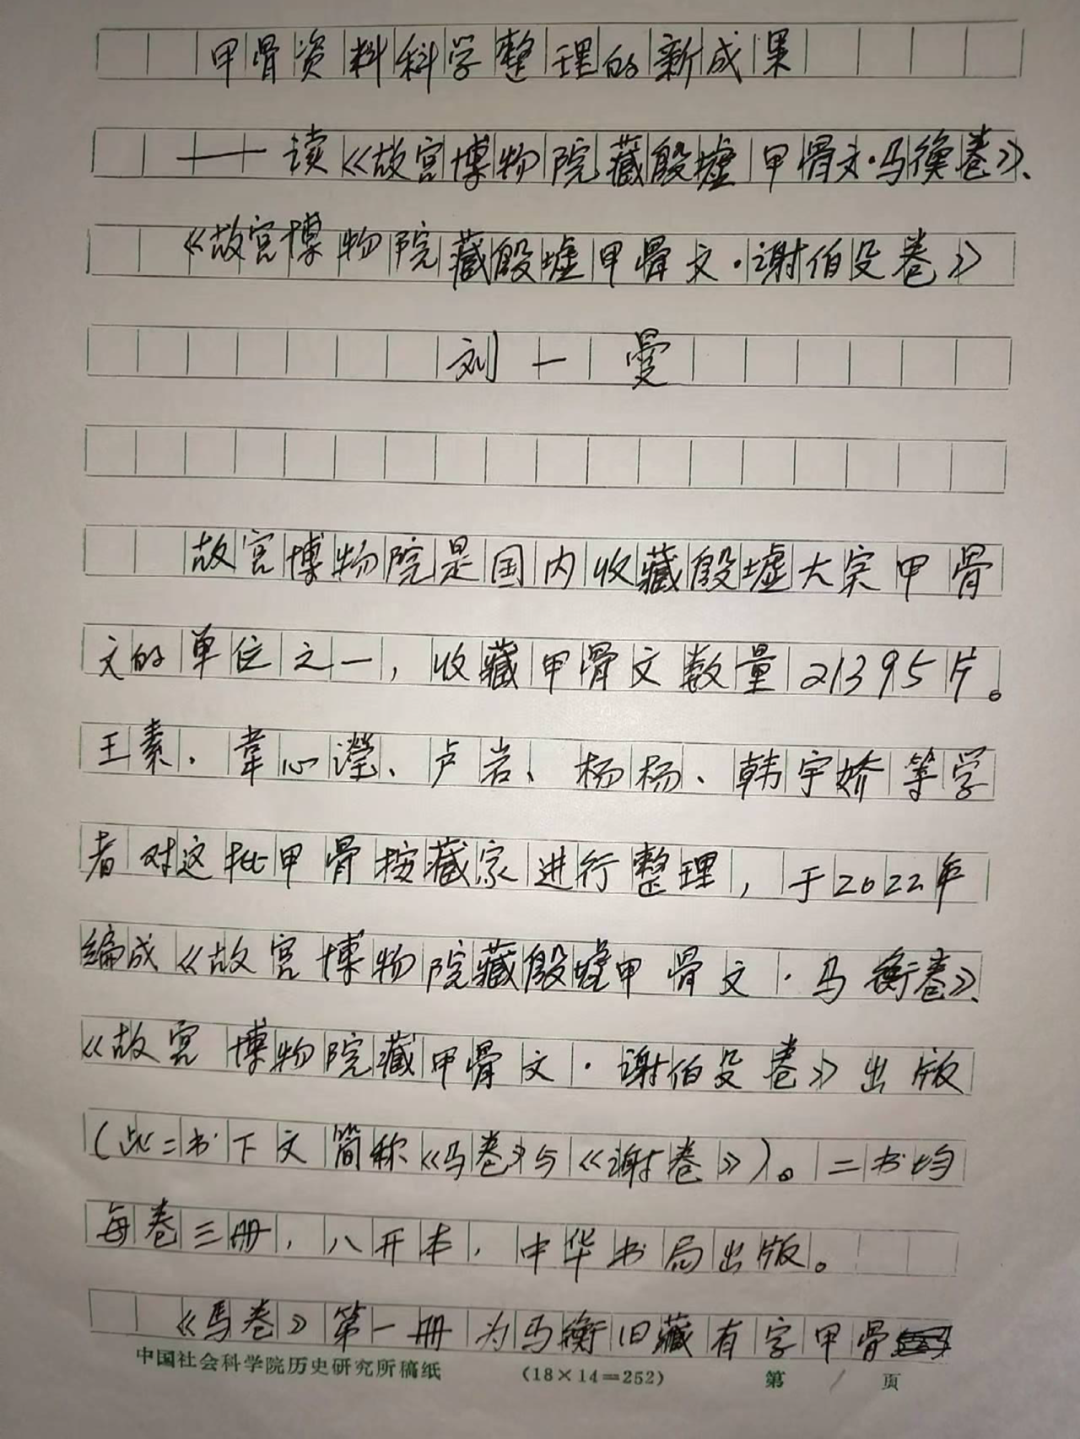 甲骨资料科学整理的新成果
——读《故宫博物院藏殷墟甲骨文·马衡卷》、
《故宫博物院藏殷墟甲骨文·谢伯殳卷》
刘一曼
故宫博物院是国内收藏殷墟大宗甲骨
文的单位之一，收藏甲骨文数量21395片。
王素、韋心瀅、卢岩、杨杨、韩宇娇等学
者对这批甲骨按藏家进行整理，于2022年
编成《故宫博物院藏殷墟甲骨文·马衡卷》、
《故宫博物院藏甲骨文·谢伯殳卷》出版
（此二书下文简称《马卷》与《谢卷》）。二书均
每卷三册，八开本，中华书局出版。
《馬卷》第一册为马衡旧藏有字甲骨
中国社会科学院历史研究所稿纸 (18×14=252) 第 1 页